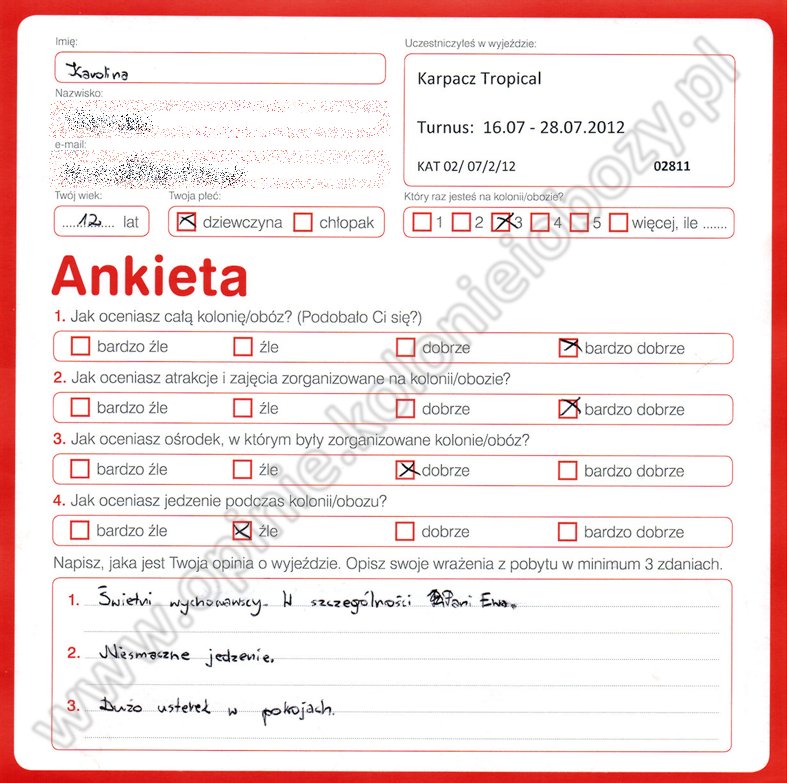 Imię:
Karolina
Nazwisko:
e-mail:
Twój wiek:
12 lat
Twoja płeć:
dziewczyna chłopak
Uczestniczyłeś w wyjeździe:
Karpacz Tropical
Turnus: 16.07 - 28.07.2012
KAT 02/ 07/2/12 02811
Który raz jesteś na kolonii/obozie?
1 2 3 4 5 więcej, ile .......
Ankieta
1. Jak oceniasz całą kolonię/obóz? (Podobało Ci się?)
bardzo źle źle dobrze bardzo dobrze
2. Jak oceniasz atrakcje i zajęcia zorganizowane na kolonii/obozie?
bardzo źle źle dobrze bardzo dobrze
3. Jak oceniasz ośrodek, w którym były zorganizowane kolonie/obóz?
bardzo źle źle dobrze bardzo dobrze
4. Jak oceniasz jedzenie podczas kolonii/obozu?
bardzo źle źle dobrze bardzo dobrze
Napisz, jaka jest Twoja opinia o wyjeździe. Opisz swoje wrażenia z pobytu w minimum 3 zdaniach.
1. Świetni wychowawscy. W szczególności Pani Ewa.
2. Niesmaczne jedzenie.
3. Dużo usterek w pokojach.
www.opinie.kolonieiobozy.pl